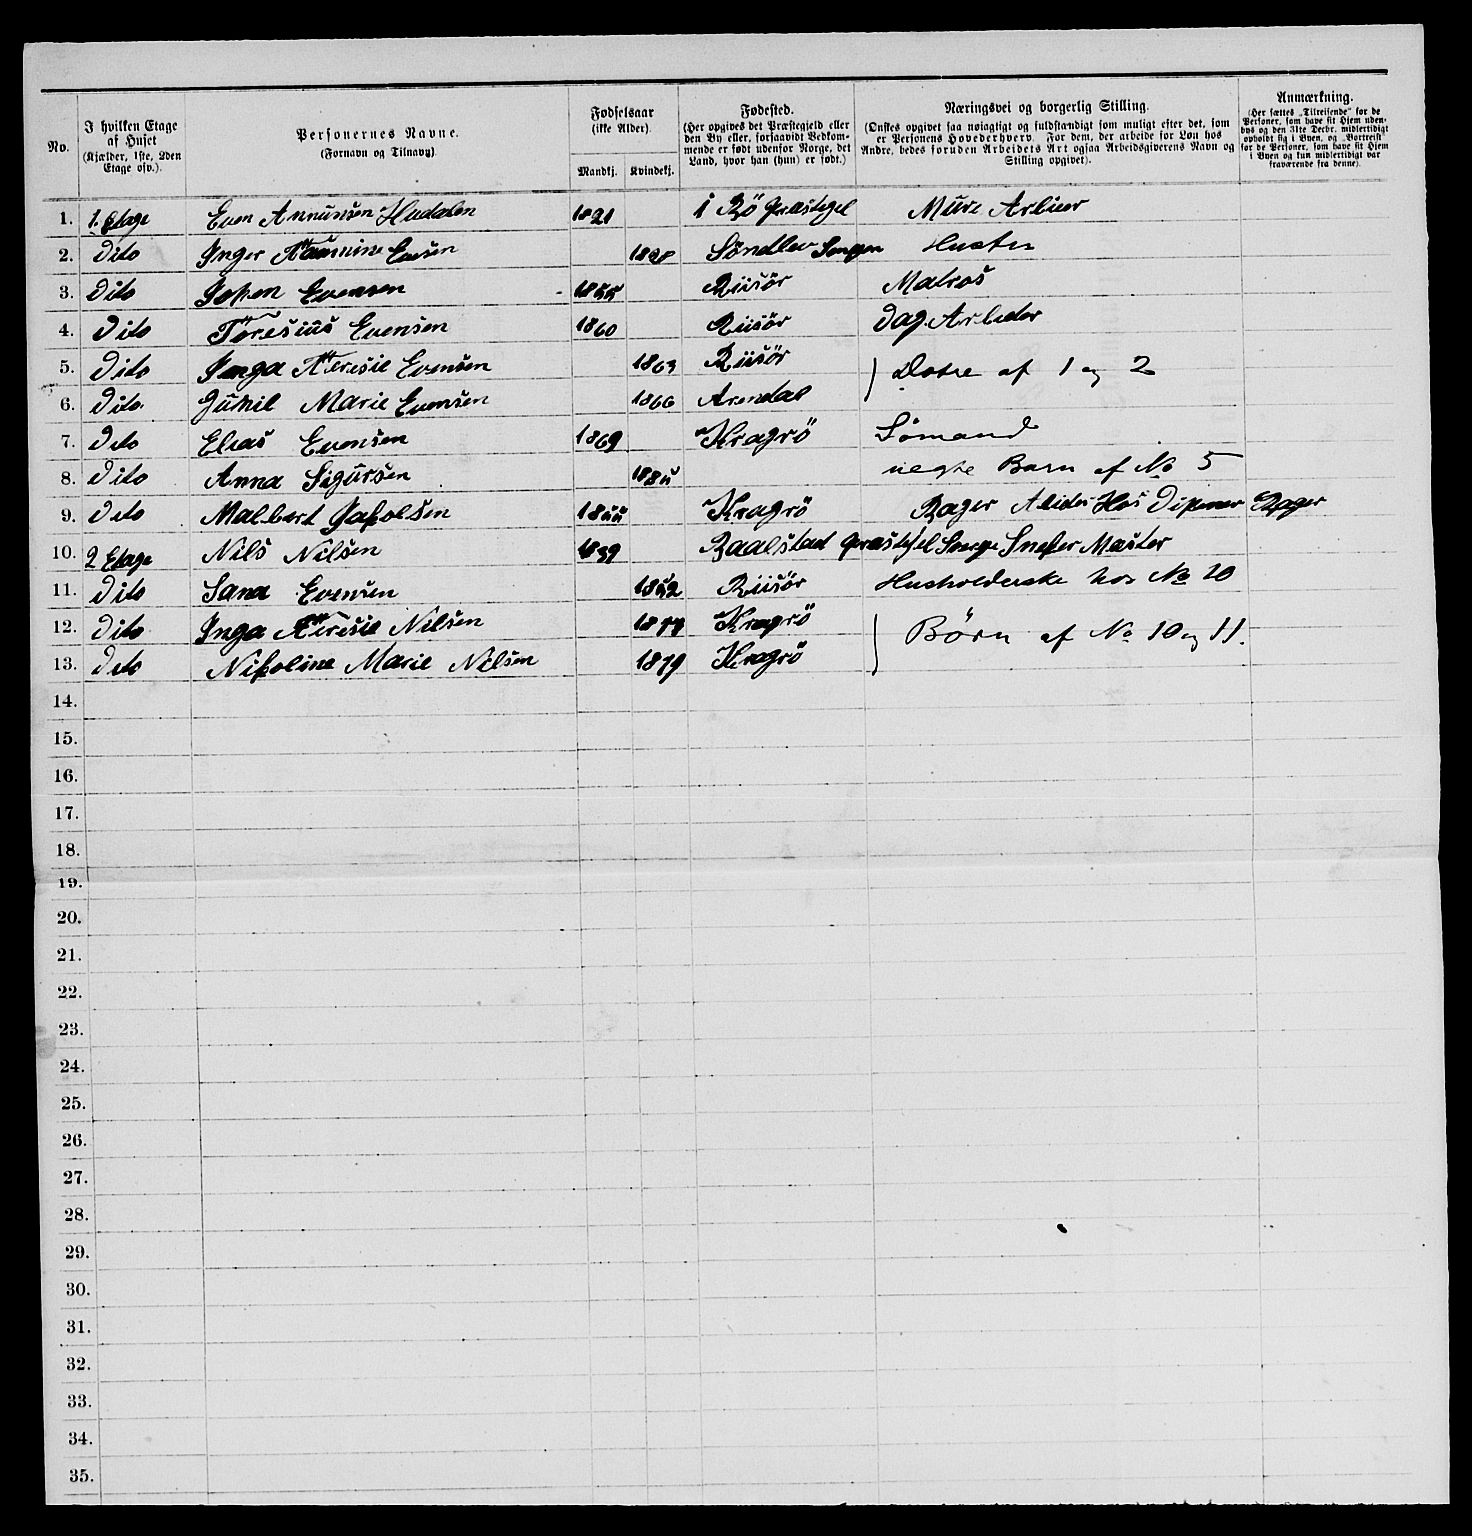 No. | I hvilken Etage af Huset (Kjælder, 1ste, 2den Etage osv.). | Personernes Navne. (Fornavn og Tilnavn). | Fødselsaar (ikke Alder). Mandkj. | Kvindekj. | Fødested. (Her opgives det Præstegjeld eller den By eller, forsaavidt Vedkommende er født udenfor Norge, det Land, hvor han (hun) er født.) | Næringsvei og borgerlig Stilling. (Ønskes opgivet saa nøiagtigt og fuldstændigt som muligt efter det, som er Personens Hovederhverv. For dem, der arbeide for Løn hos Andre, bedes foruden Arbeidets Art ogsaa Arbeidsgiverens Navn og Stilling opgivet). | Anmærkning. (Her sættes „Tilreisende" for de Personer, som have sit Hjem udenbys og den 31te Decbr. midlertidigt opholdt sig i Byen, og „Bortreist" for de Personer, som have sit Hjem i Byen og kun midlertidigt var fraværende fra denne).
1. 1. Etage Even Annunsen Hudalen 1821 i Bö Præstegel Mure
2. Dito Inger Evensen Söndlev Hustru
3. Dito Johen Evensen 1855 Riisör Matros
4. Dito Töresius Evensen 1860 Riisör Dag Arbeder
5. Dito Inga Teresie Evensen 1863 Riisör Dotre af 1 og 2
6. Dito Gunil Marie Evensen 1866 Arendal
7. Dito Elias Evensen 1869 Kragrö Sömand
8. Dito Anna Sigursen uegte Barn af No 5
9. Dito Malbert Jakolsen Kragrö Bager Hos Bager
10. 2 Etage Nils Nilsen 1839 Master
11. Dito Sana Evensen 1852 Riisör Husholderske hos No 10
12. Dito Inga Teresie Nilsen 1877 Kragrö Børn af No 10 og 11.
13. Dito Nikoline Marie Nilsen 1879 Kragrö
14.
15.
16.
17.
18.
19.
20.
21.
22.
23.
24.
25.
26.
27.
28.
29.
30.
31.
32.
33.
34.
35.